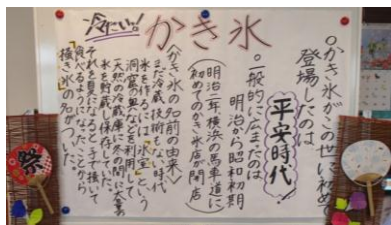 冷たい!
かき氷
○かき氷がこの世に初めて
登場したのは
平安時代
○一般的に広まったのは
明治から昭和初期
(明治二年、横浜の馬車道に
初めてのかき氷店が開店)
〈かき氷の名前の由来〉
まだ冷蔵技術もない時代
氷を作るには「氷室」という
洞窟の奥などを利用して
天然の冷蔵庫に冬の間に大量の
氷を貯蔵し保存していた。
それを夏になると手で掻いて
食べるようになったことから
「掻き氷」の名がついた。
祭